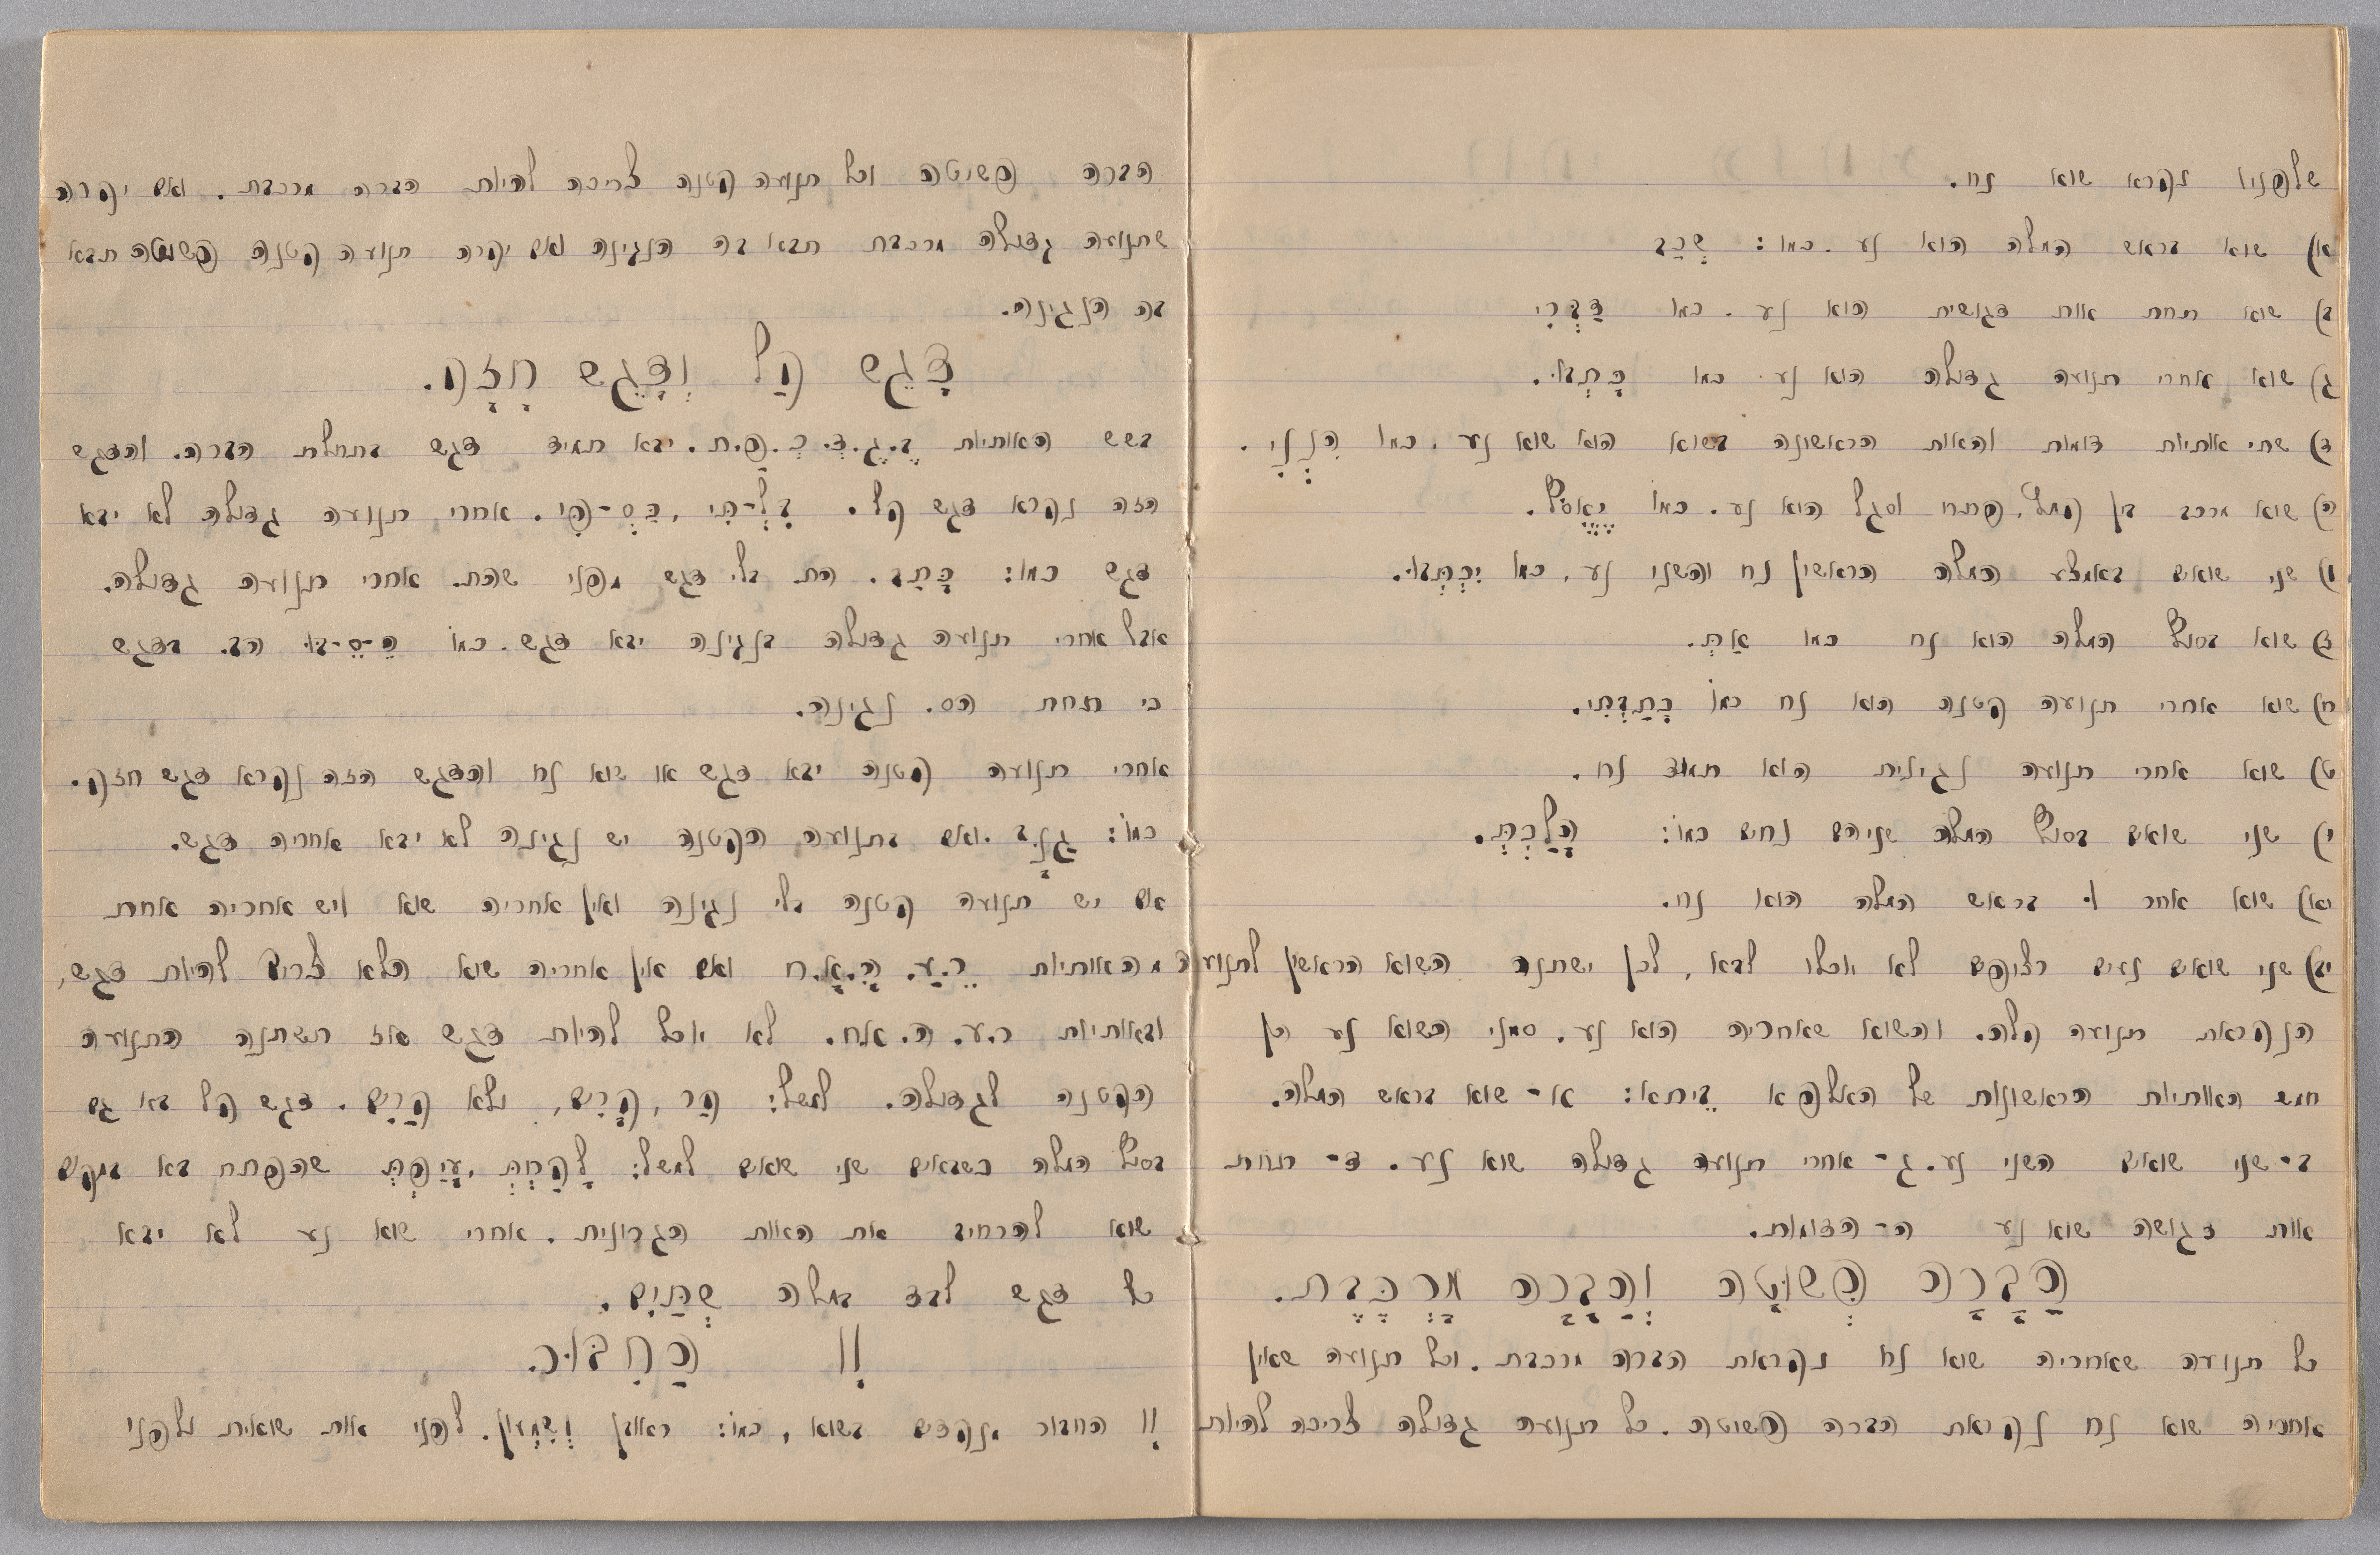 שלפניו נקרא שוא נח.
א) שוא בראש המלה הוא נע. כמו: שְׁכַב
ב) שוא תחת אות דגושית הוא נע. כמו דַּבְּרִי
ג) שוא אחרי תנועה גדולה הוא נע. כמו כָּתְבוּ.
ד) שתי אותיות דומות והאות הראשונה בשוא הוא שוא נע. כמו הִנְנִי.
ה) שוא מרכב בין קמץ, פתח וסגל הוא נע. כמו
ו) שני שואים באמצע המלה הראשון נח והשני נע, כמו יִכְתְּבוּ.
ז) שוא בסוף המלה הוא נח כמו אַתְּ.
ח) שוא אחרי תנועה קטנה הוא נח כמו כָּתַבְתִּי.
ט) שוא אחרי תנועה נגינית הוא תמיד נח.
י) שני שואים בסוף המלה שניהם נחים כמו: הָלַכְתְּ.
יא) שוא אחר וּ בראש המלה הוא נח.
יב) שני שואים נעים רצופים לא יוכלו לבא, לכן ישתנה השוא הראשון לתנועה
הנקראת תנועה קלה. והשוא שאחריה הוא נע. סמני השוא נע הן
חמש האותיות הראשונות של האלפא בֵּיתא: א- שוא בראש המלה.
ב- שני שואים השני נע. ג- אחרי תנועה גדולה שוא נע. ד- תחת
אות דגושה שוא נע ה- הדומות.
הֲבָרָה פְּשׁוּטָה וַהֲבָרָה מֻרְכֶּבֶת.
כל תנועה שאחריה שוא נח נקראת הברה מרכבת. וכל תנועה שאין
אחריה שוא נח נקראת הברה פשוטה. כל תנועה גדולה צריכה להיות
הברה פשוטה וכל תנועה קטנה צריכה להיות הברה מרכבת. ואם יקרה
שתנועה גדולה מרכבת תבא בה הנגינה ואם יקרה תנועה קטנה פשוטה תבא
בה הנגינה.
דָּגֵשׁ קַל וְדָגֵשׁ חָזָק.
בשש האותיות בּ.גּ.דּ.כּ.פּ.ת. יבא תמיד דגש בתחלת הברה. והדגש
הזה נקרא דגש קל. כַּסְ-פִּי. אחרי תנועה גדולה לא יבא
דגש כמו: כָּתַב. הת בלי דגש מפני שהת. אחרי תנועה גדולה.
אבל אחרי תנועה גדולה בנגינה יבא דגש. כמו הֵ-סֵ-בּוּ הב. בדגש
כי תחת הס. נגינה.
אחרי תנועה קטנה יבא דגש או שוא נח והדגש הזה נקרא דגש חזק.
כמו: גַּנָּב. ואם בתנועה הקטנה יש נגינה לא יבא אחריה דגש.
אם יש תנועה קטנה בלי נגינה ואין אחריה שוא ויש אחריה אחת
מהאותיות ר.ע.ה.א.ח ואם אין אחריה שוא הלא צריך להיות דגש,
ובאותיות ר.ע.ה.אח. לא יוכל להיות דגש אז תשתנה התנועה
הקטנה לגדולה. למשל: קַר, קָרִים, ולא קַרִּים. דגש קל בא גם
בסוף המלה כשבאים שני שואים למשל: לָקַחְתְּ, עָיַפְתְּ שהפתח בא במקום
שוא להרחיב את האות הגרונית. אחרי שוא נע לא יבא
כל דגש לבד במלה שְׁתַּיִם.
וְ הַחִבּוּר.
וְ החבור מנקדים בשוא, כמו: ראובן וְשִׁמְעון. לפני אות שואית ולפני